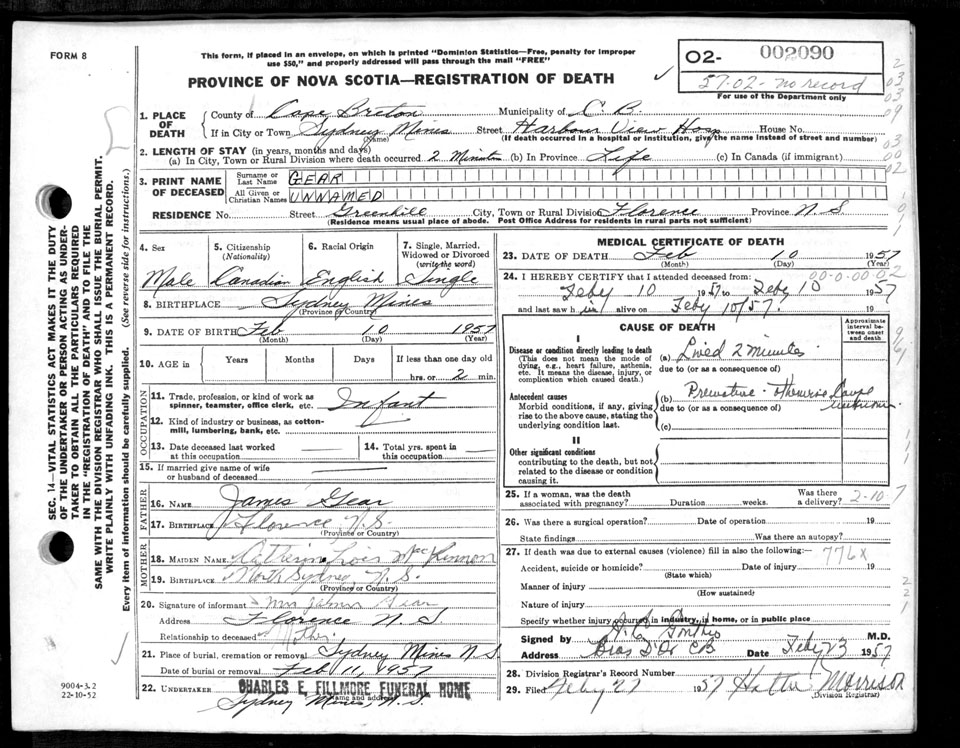 FORM 8
This form, if placed in an envelope, on which is printed "Dominion Statistics—Free, penalty for improper
use $50," and properly addressed will pass through the mail "FREE"
PROVINCE OF NOVA SCOTIA—REGISTRATION OF DEATH
02- 002090
57-02- no record
For use of the Department only
1. PLACE OF DEATH
County of Cape Breton Municipality of C B.
If in City or Town Sydney Mines Street Harbour View Hosp House No.
(Name) (If death occurred in a hospital or institution, give the name instead of street and number)
2. LENGTH OF STAY (in years, months and days)
(a) In City, Town or Rural Division where death occurred 2 Minutes (b) In Province Life (c) In Canada (if immigrant)
3. PRINT NAME OF DECEASED
Surname or Last Name GEAR
All Given or Christian Names UNNAMED
RESIDENCE No. Street Greenhill City, Town or Rural Division Florence Province N.S
(Residence means usual place of abode. Post Office Address for residents in rural parts not sufficient)
4. Sex Male
5. Citizenship (Nationality) Canadian
6. Racial Origin English
7. Single, Married, Widowed or Divorced (write the word) Single
8. BIRTHPLACE Sydney Mines
(Province or Country)
9. DATE OF BIRTH Feb 10 1957
(Month) (Day) (Year)
10. AGE in Years Months Days If less than one day old
hrs. or 2 min.
OCCUPATION
11. Trade, profession, or kind of work as spinner, teamster, office clerk, etc. Infant
12. Kind of industry or business, as cotton-mill, lumbering, bank, etc.
13. Date deceased last worked at this occupation
14. Total yrs. spent in this occupation
15. If married give name of wife or husband of deceased
FATHER
16. NAME James Gear
17. BIRTHPLACE Florence N.S.
(Province or Country)
MOTHER
18. MAIDEN NAME Catherine Lois MacKinnon
19. BIRTHPLACE North Sydney, N.S.
(Province or Country)
20. Signature of informant Mrs James Gear
Address Florence N.S
Relationship to deceased Mother
21. Place of burial, cremation or removal Sydney Mines N.S
Date of burial or removal Feb 11, 1957
22. UNDERTAKER CHARLES E. FILLMORE FUNERAL HOME
(Name and address)
Sydney Mines, N.S.
MEDICAL CERTIFICATE OF DEATH
23. DATE OF DEATH Feb 10 1957
(Month) (Day) (Year)
24. I HEREBY CERTIFY that I attended deceased from: 00-0-00 02
Feby 10 1957 to Feby 10 1957
and last saw h alive on Feby 10/57 19
CAUSE OF DEATH
Approximate interval between onset and death
I
Disease or condition directly leading to death
(This does not mean the mode of dying, e.g., heart failure, asthenia, etc. It means the disease, injury, or complication which caused death.)
(a) Lived 2 minutes
due to (or as a consequence of)
Antecedent causes
Morbid conditions, if any, giving rise to the above cause, stating the underlying condition last.
(b) Premature
due to (or as a consequence of) unknown
(c)
II
Other significant conditions
contributing to the death, but not related to the disease or condition causing it.
25. If a woman, was the death associated with pregnancy? Duration weeks. Was there a delivery? 2-10-7
26. Was there a surgical operation? Date of operation 19
State findings Was there an autopsy?
27. If death was due to external causes (violence) fill in also the following:— 776x
Accident, suicide or homicide? Date of injury 19
(State which)
Manner of injury
(How sustained)
Nature of injury
Specify whether injury occurred in industry, in home, or in public place
Signed by M.D.
Address Bras D'Or CB Date Feby 23 1957
28. Division Registrar's Record Number
29. Filed Feby 27 1957 Hattie Morrison
(Division Registrar)
SEC. 14—VITAL STATISTICS ACT MAKES IT THE DUTY
OF THE UNDERTAKER OR PERSON ACTING AS UNDER-
TAKER TO OBTAIN ALL THE PARTICULARS REQUIRED
IN THE "REGISTRATION OF DEATH" AND TO FILE THE
SAME WITH THE DIVISION REGISTRAR WHO SHALL ISSUE THE BURIAL PERMIT.
WRITE PLAINLY WITH UNFADING INK. THIS IS A PERMANENT RECORD.
Every item of information should be carefully supplied. (See reverse side for instructions.)
9004-3.2
22-10-52